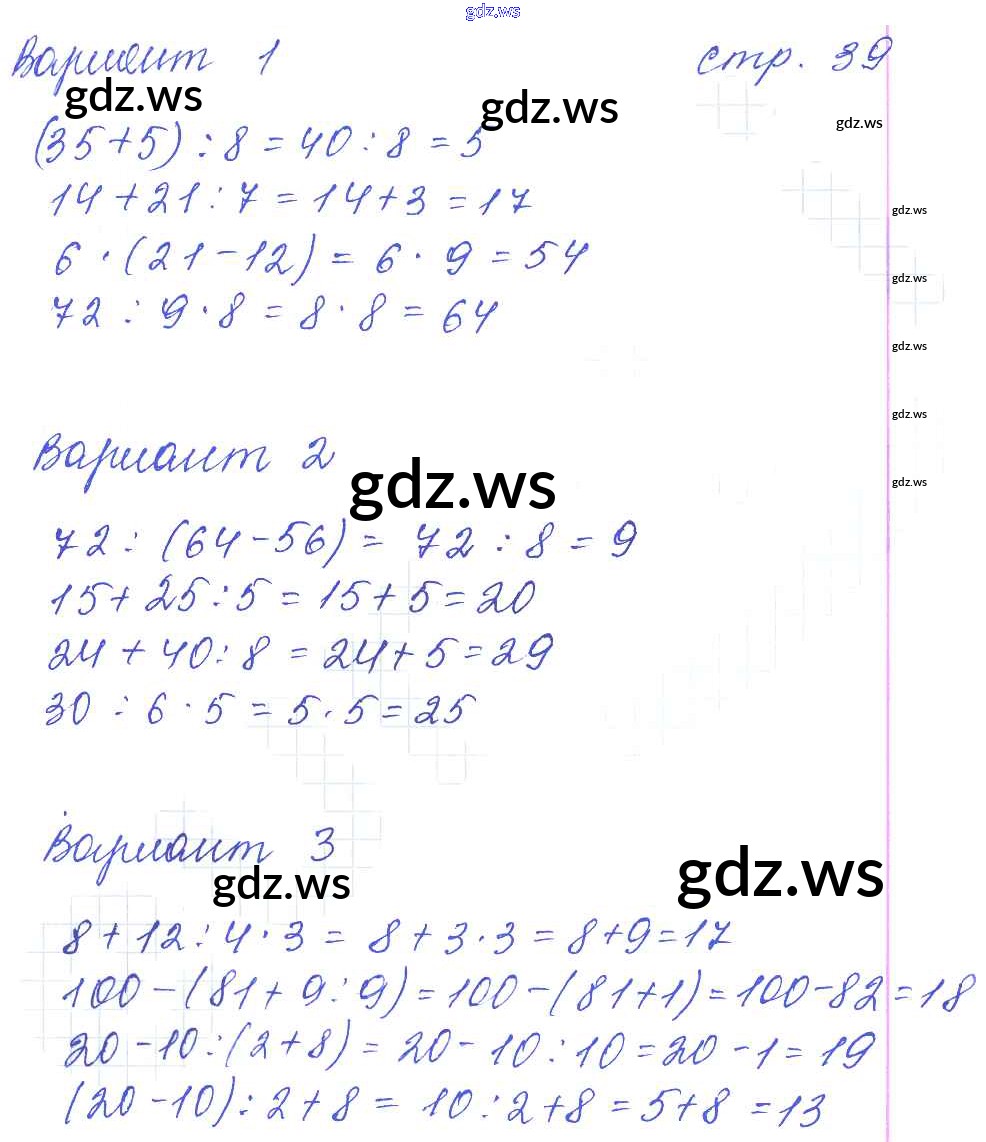 gdz.ws
Вариант 1 стр. 39
gdz.ws gdz.ws gdz.ws
(35+5) : 8 = 40 : 8 = 5
14 + 21 : 7 = 14 + 3 = 17
gdz.ws
6 · (21 - 12) = 6 · 9 = 54
gdz.ws
72 : 9 · 8 = 8 · 8 = 64
gdz.ws
gdz.ws
Вариант 2
gdz.ws gdz.ws
72 : (64 - 56) = 72 : 8 = 9
15 + 25 : 5 = 15 + 5 = 20
24 + 40 : 8 = 24 + 5 = 29
30 : 6 · 5 = 5 · 5 = 25
Вариант 3
gdz.ws gdz.ws
8 + 12 : 4 · 3 = 8 + 3 · 3 = 8 + 9 = 17
100 - (81 + 9 : 9) = 100 - (81 + 1) = 100 - 82 = 18
20 - 10 : (2 + 8) = 20 - 10 : 10 = 20 - 1 = 19
(20 - 10) : 2 + 8 = 10 : 2 + 8 = 5 + 8 = 13